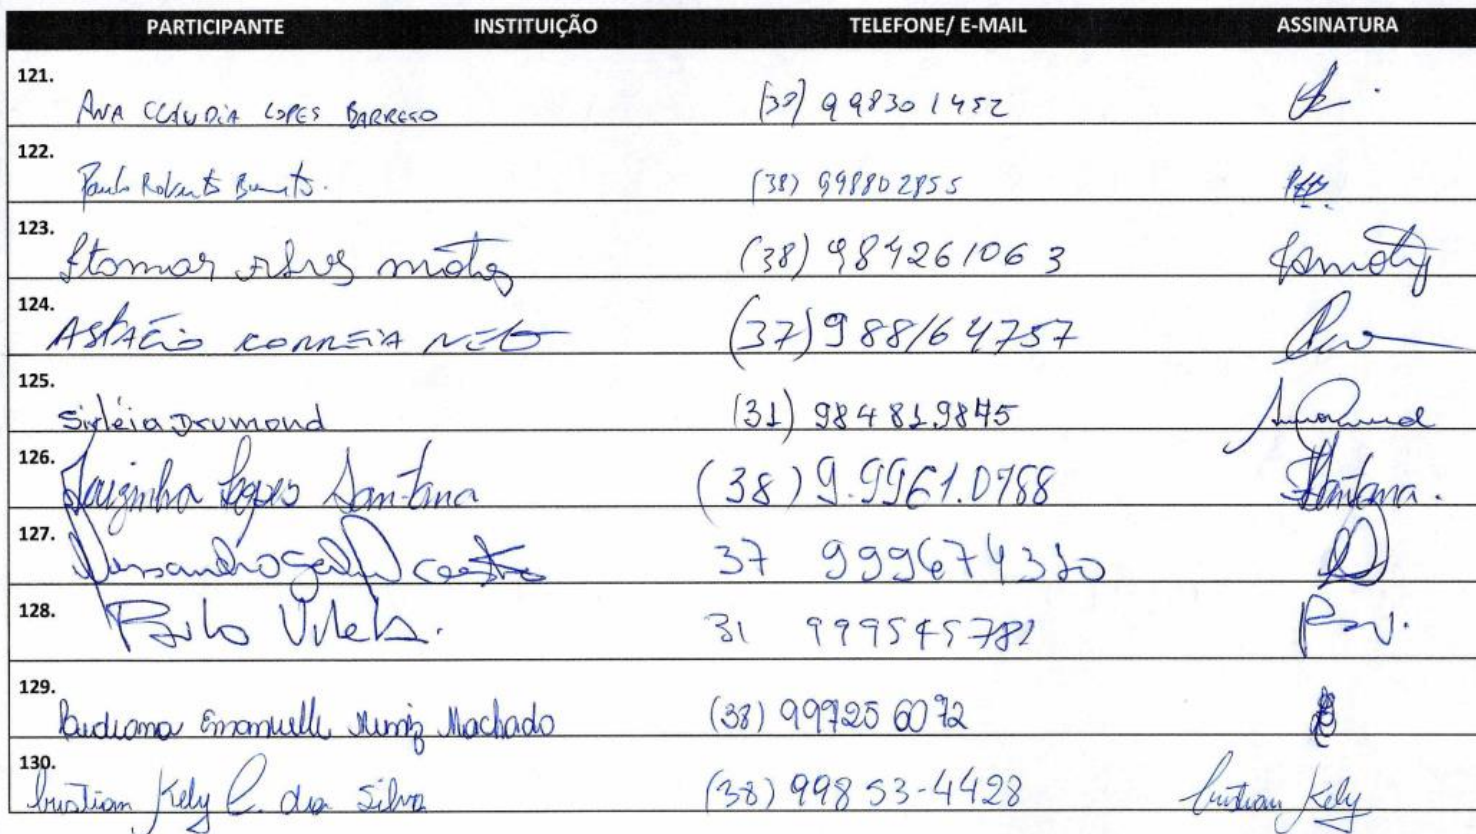 PARTICIPANTE INSTITUIÇÃO TELEFONE/ E-MAIL ASSINATURA
121. ANA CLAUDIA LOPES BARRESO (37) 998301452
122. Paulo Roberto (38) 998802855
123. Itamar Alves (38) 984261063
124. ASPÁCIO CORREIA NETO (37) 988164757
125. Sirléia Drumond (31) 984819845
126. Lopes Santana (38) 9.9961.0788 Santana.
127. 37 999674310
128. Paulo Vilela. 31 999545782
129. Emanuelle Muniz Machado (38) 999256072
130. Cristian Kely C. da Silva (38) 99853-4428 Cristian Kely